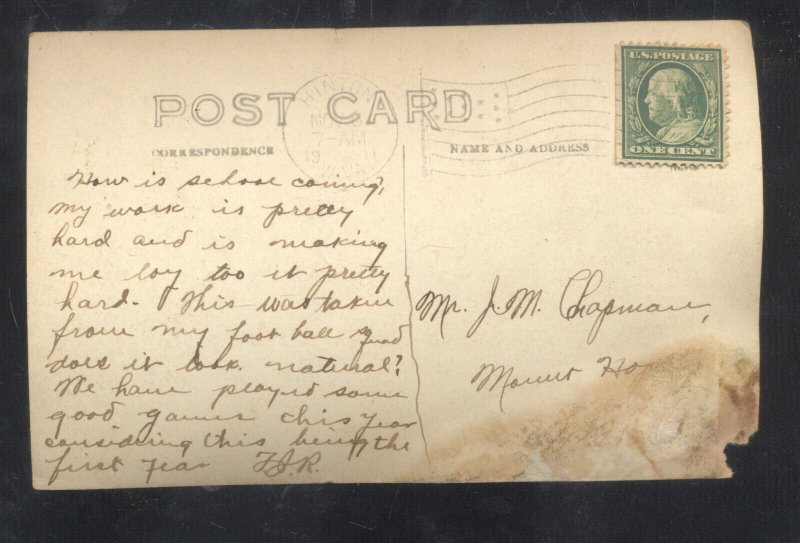 POST CARD
HINTON
AM
CORRESPONDENCE
NAME AND ADDRESS
U.S. POSTAGE
ONE CENT
How is school coming,
my work is pretty
hard and is making
me loy too it pretty
hard. This was taken
from my foot ball squad
does it look natural?
We have played some
good games this year
considering this being the
first year F.S.R.
Mr. J. M. Chapman,
Mount Ho